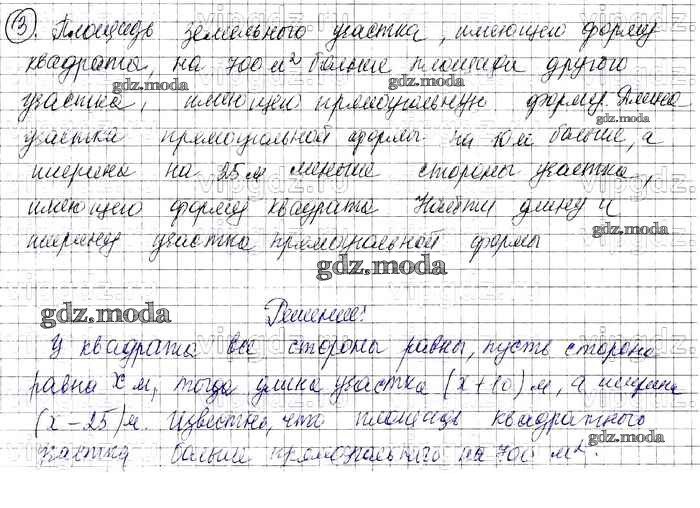 3. Площадь земельного участка, имеющего форму
квадрата, на 700 м² больше площади другого
gdz.moda gdz.moda
участка, имеющего прямоугольную форму. Длина
gdz.moda
участка прямоугольной формы на 10 м больше, а
ширина на 25 м меньше стороны участка,
vipgdz.ru
имеющего форму квадрата Найти длину и
gdz.moda
ширину участка прямоугольной формы
gdz.moda
gdz.moda Решение:
У квадрата все стороны равны, пусть сторона
равна х м, тогда длина участка (х+10) м, а ширина
gdz.moda
(х-25) м. Известно, что площадь квадратного
gdz.moda
участка больше прямоугольного на 700 м².